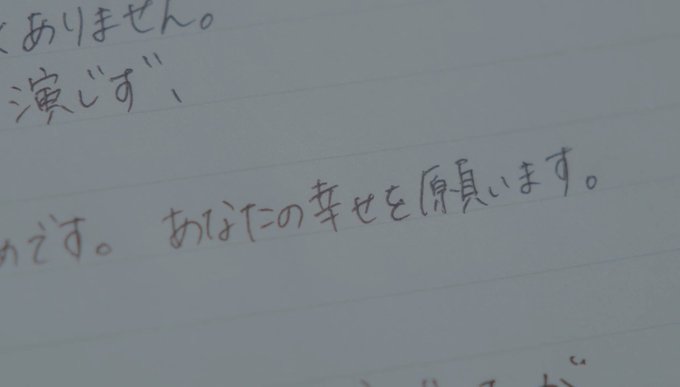 くありません。
演じず、
めです。 あなたの幸せを願います。